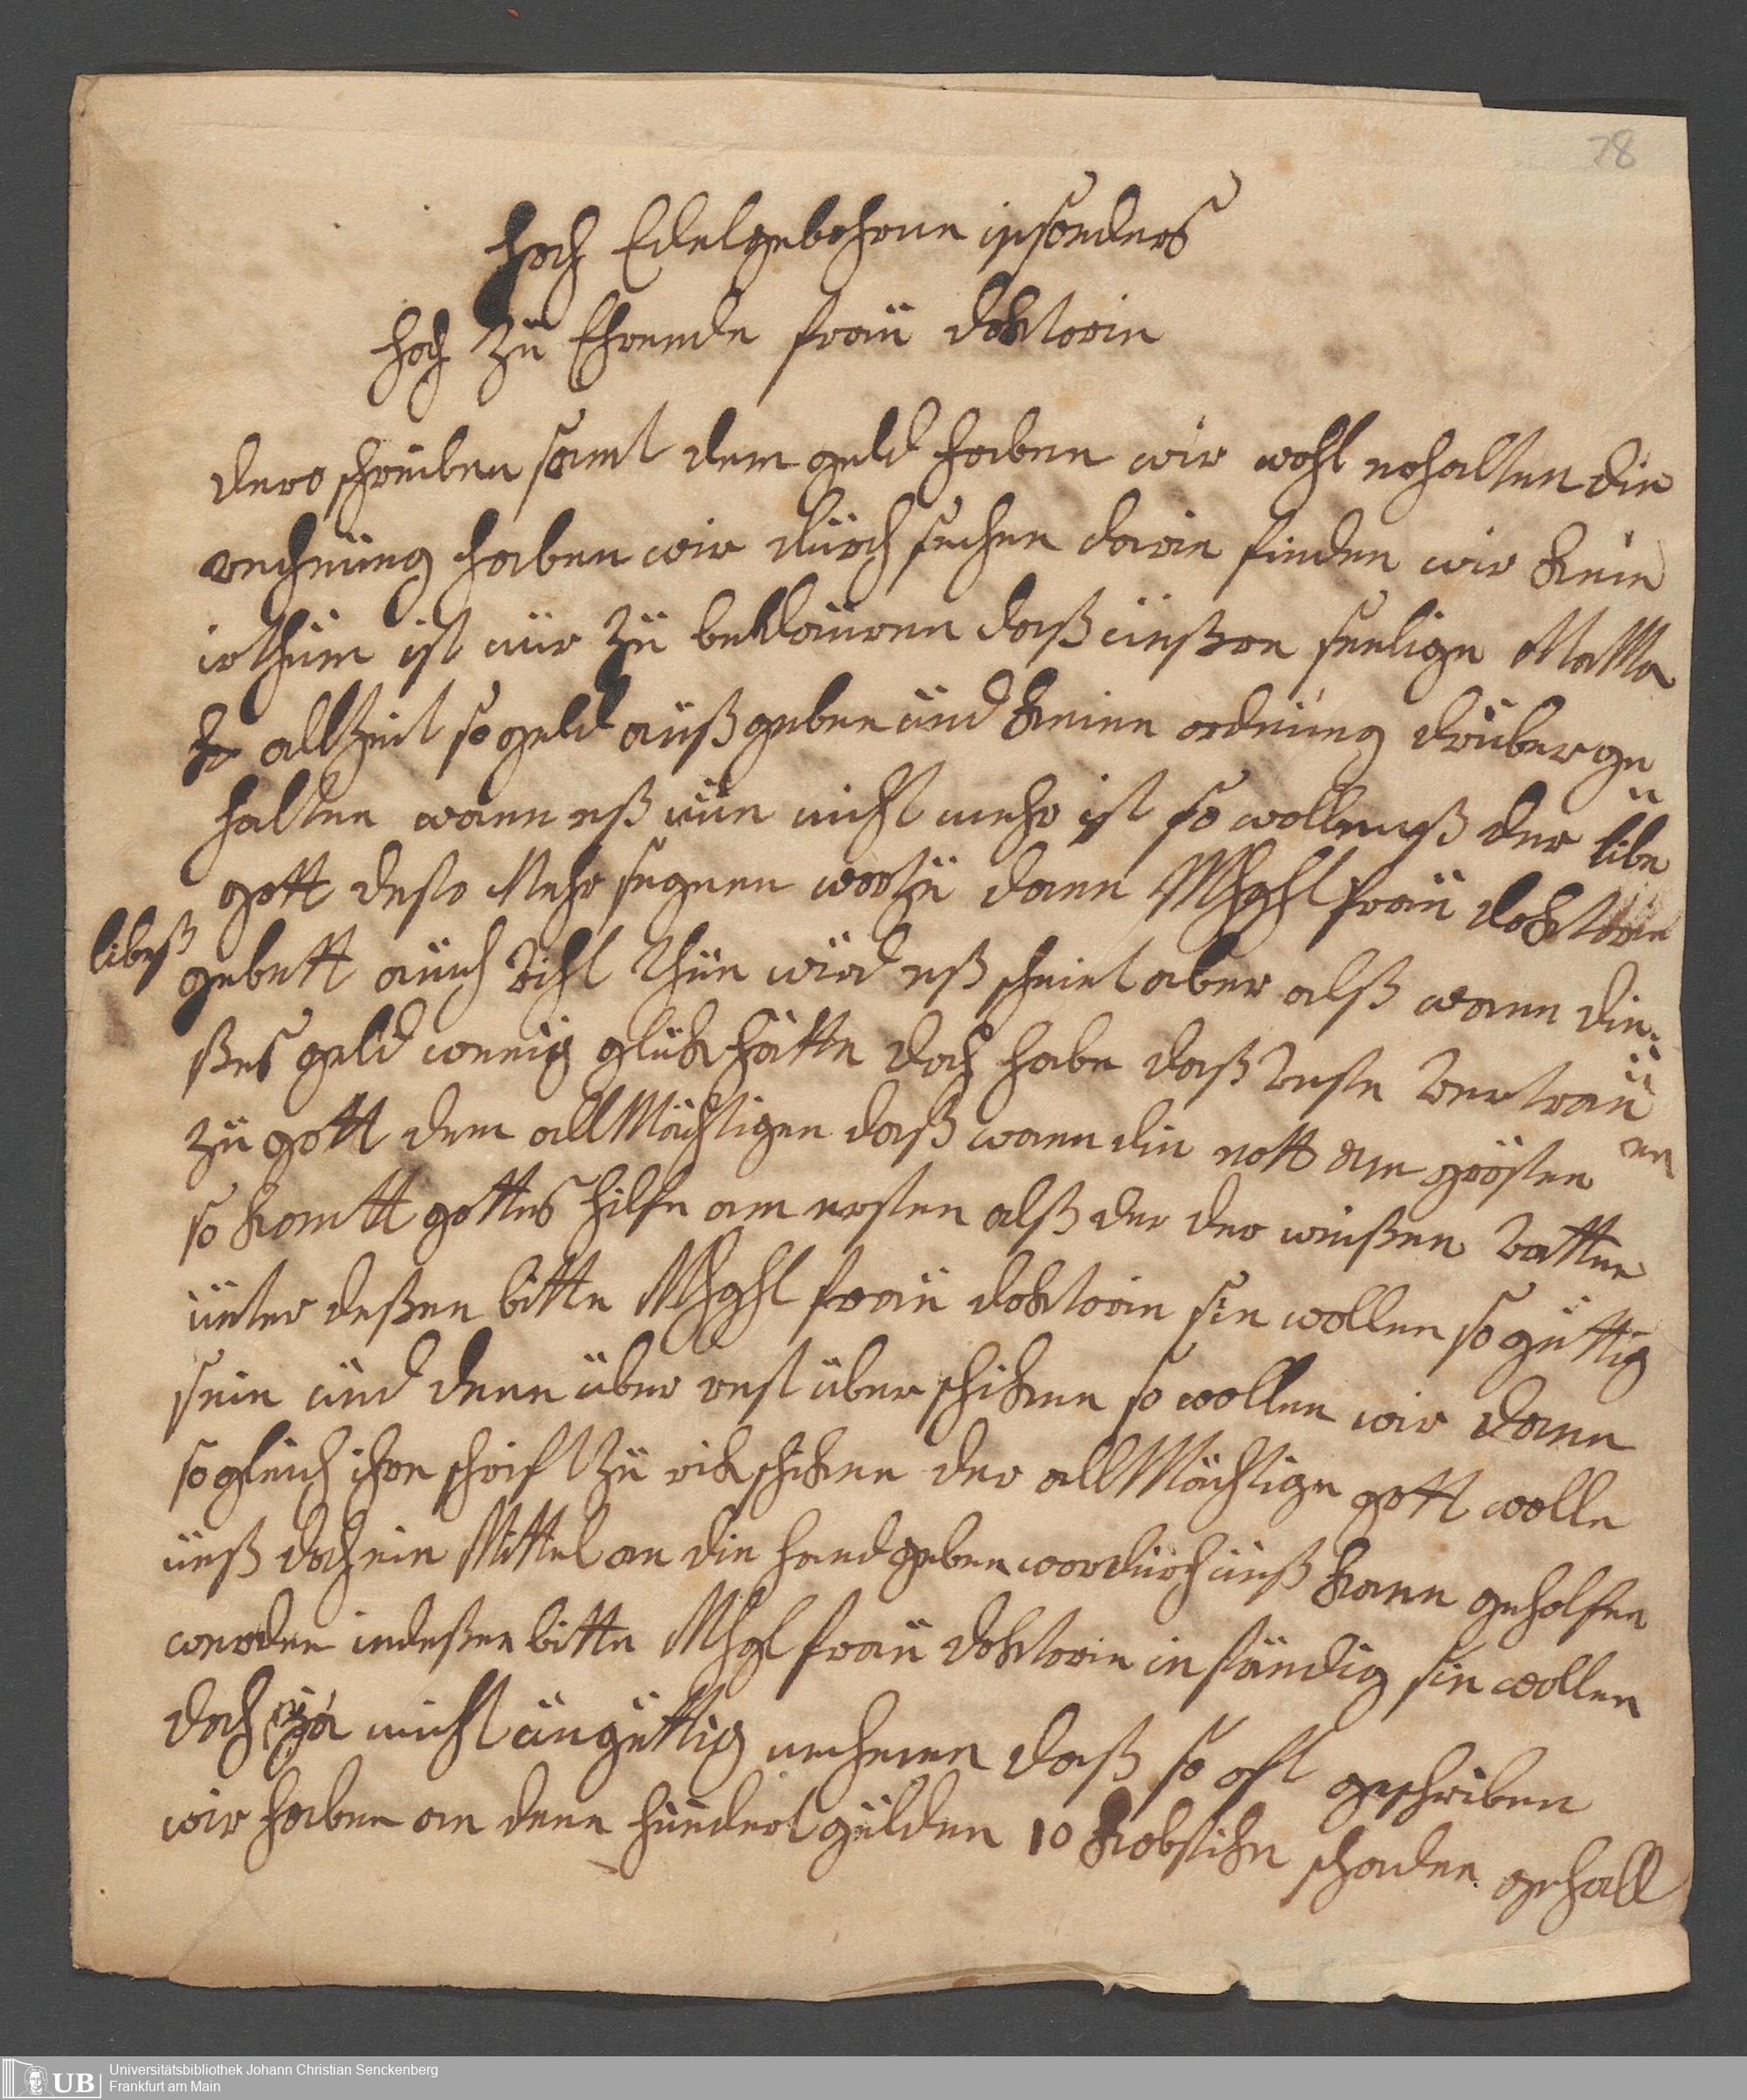 78
Hoch Edelgebohrne insonders
hoch zü Ehrende fraü doktorin
dero schreiben samt dem geld haben wir wohl erhalten die
rechnüng haben wir dürch sechen darin finden wir kein
irthüm ist nür zü beklaüren daß ünßre seelige MaMa
allzeit so geld aüßgeben ünd keine ordnüng drüber ge
halten wann eß nün nicht mehr ist so wolle unß der libe
gott desto Mehr segnen wozü dann Mhghl fraü doktorin
libeß
gebett aüch vihl thün wird eß scheint aber alß wann die¬
ßes geld wenig glük hätte doch habe daß veste vertraü
en
zü gott dem allMächtigen daß wann die nott am grösten
so komtt gottes hilfe am ersten alß der der weißen vatter
ünter deßen bitte Mhghl fraü doktorin sie wollen so güttig
sein ünd denn über rest überschiken so wollen wir dann
sogleich ihre schrift zü rik schiken der allMächtige gott wolle
ünß doch ein Mittel an die hand geben wordürch ünß kann geholfen
werden indeßen bitte Mhgl fraü doktorin inständig sie wollen
doch ja nicht üngüttig nehmen daß so oft geschriben
wir haben an denn hündert gülden 10 kobstike schaden gehatt
UB
Universitätsbibliothek Johann Christian Senckenberg
Frankfurt am Main